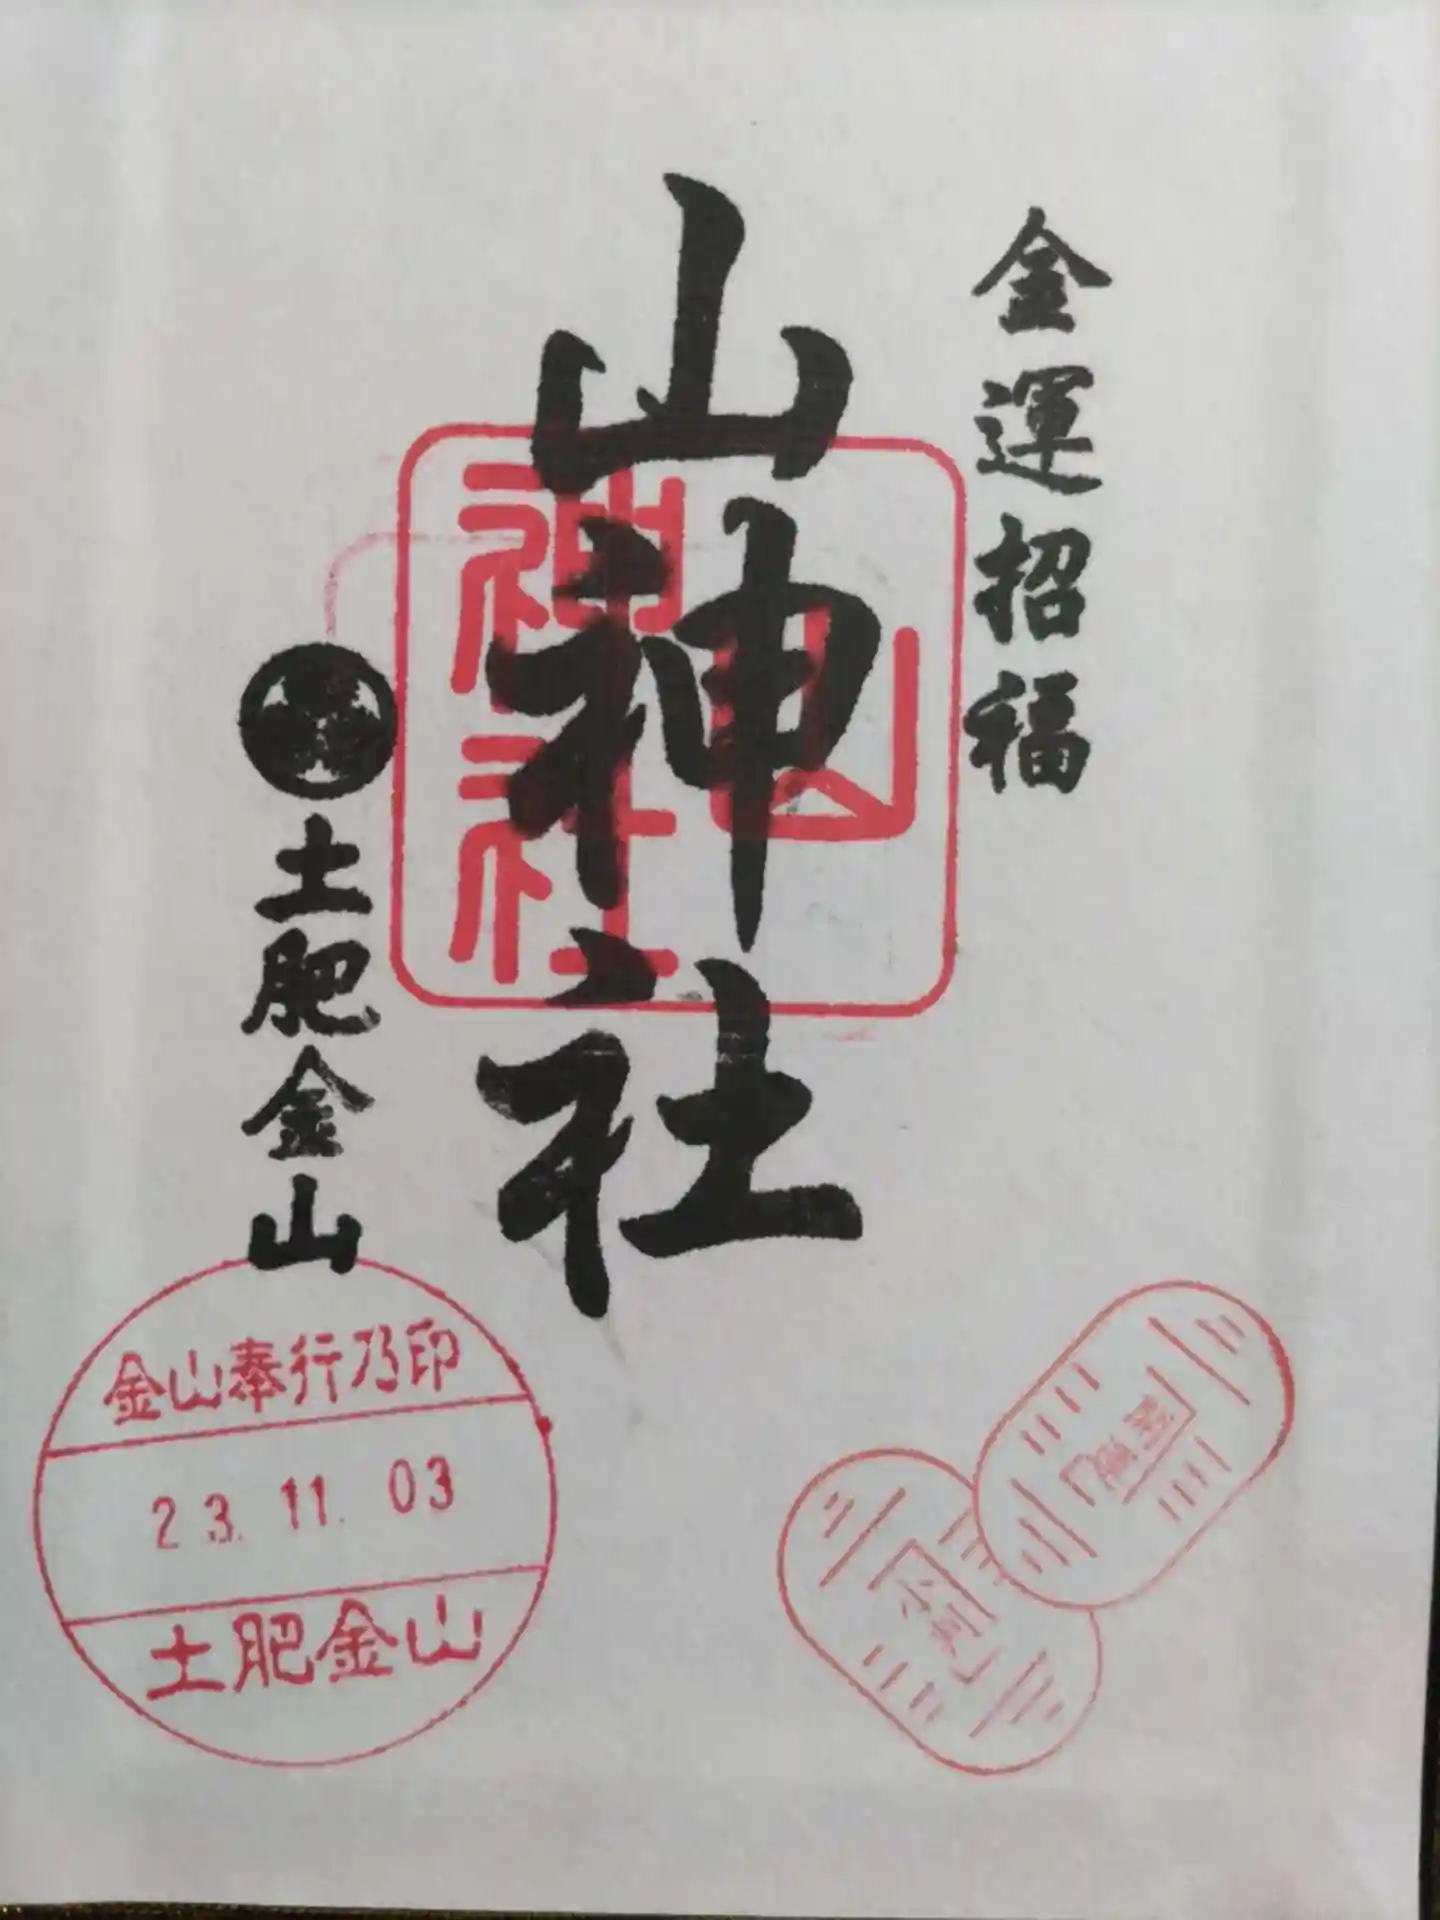 金運招福
山神社
山
神社
土肥金山
金山奉行乃印
23.11.03
土肥金山